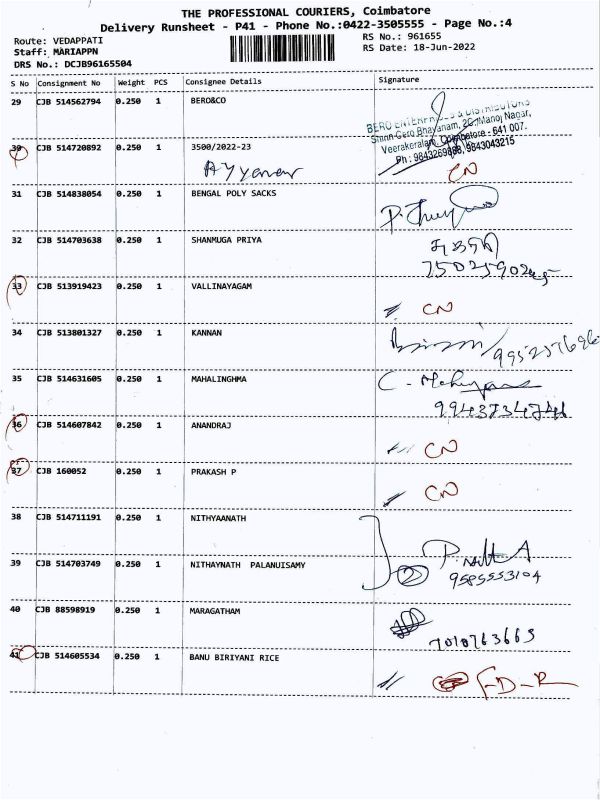 THE PROFESSIONAL COURIERS, Coimbatore
Delivery Runsheet - P41 - Phone No.:0422-3505555 - Page No.:4
Route: VEDAPPATI
RS No.: 961655
Staff: MARIAPPN
RS Date: 18-Jun-2022
DRS No.: DCJB96165504
S No Consignment No Weight PCS Consignee Details Signature
29 CJB 514562794 0.250 1 BERO&CO
BERO ENTERPRISES & DISTRIBUTORS
Bhavanam, 2C, Manoj Nagar,
Veerakeralam, Coimbatore - 641 007.
Ph : 9843269898, 9843043215
30 CJB 514720892 0.250 1 3500/2022-23
Ayyanar
CN
31 CJB 514838054 0.250 1 BENGAL POLY SACKS
32 CJB 514703638 0.250 1 SHANMUGA PRIYA
33 CJB 513919423 0.250 1 VALLINAYAGAM
CN
34 CJB 513801327 0.250 1 KANNAN
35 CJB 514631605 0.250 1 MAHALINGHMA
36 CJB 514607842 0.250 1 ANANDRAJ
CN
37 CJB 160052 0.250 1 PRAKASH P
CN
38 CJB 514711191 0.250 1 NITHYAANATH
39 CJB 514703749 0.250 1 NITHAYNATH PALANUISAMY
2
9585553104
40 CJB 88598919 0.250 1 MARAGATHAM
7010763663
41 CJB 514605534 0.250 1 BANU BIRIYANI RICE